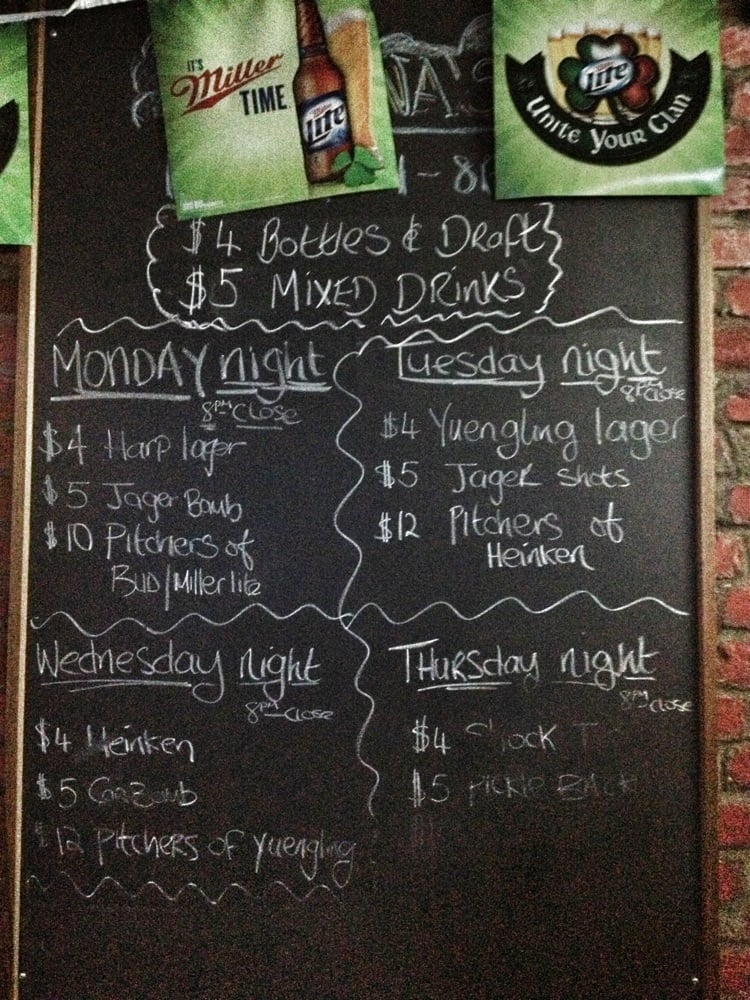 IT'S
Miller
TIME
Miller
Lite
Lite
Unite Your Clan
NA'S
- 8
$4 Bottles & Draft
$5 MIXED DRINKS
MONDAY night
8PM CLOSE
$4 Harp lager
$5 Jager Bomb
$10 Pitchers of
BUD/Miller lite
Tuesday night
8PM Close
$4 Yuengling lager
$5 Jager shots
$12 Pitchers of
Heinken
Wednesday night
8PM CLOSE
$4 Heinken
$5 Car Bomb
$12 Pitchers of Yuengling
THURSday night
8PM CLOSE
$4 Shock T
$5 PICKLE BACK